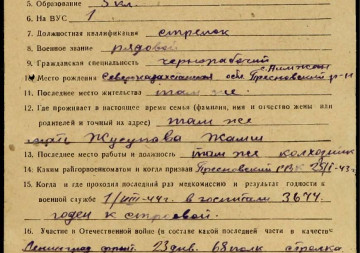 5. Образование 5 кл.
6. На ВУС 1
7. Должностная квалификация стрелок
8. Военное звание рядовой
9. Гражданская специальность чернорабочий
10. Место рождения Северказахстанская обл. Пресновский р-н
11. Последнее место жительства там же
12. Где проживает в настоящее время семья (фамилия, имя и отчество жены или
родителей и точный их адрес) там же
мать Жусупова
13. Последнее место работы и должность там же колхозник
14. Каким райгорвоенкоматом и когда призван Пресновский РВК
15. Когда и где проходил последний раз медкомиссию и результат годности к
военной службе 1/VIII-44г. в госпитали 3644
годен к строевой.
16. Участие в Отечественной войне (в составе какой последней части и в качестве
Ленинград. фронт. 23 див. 68 полк стрелка